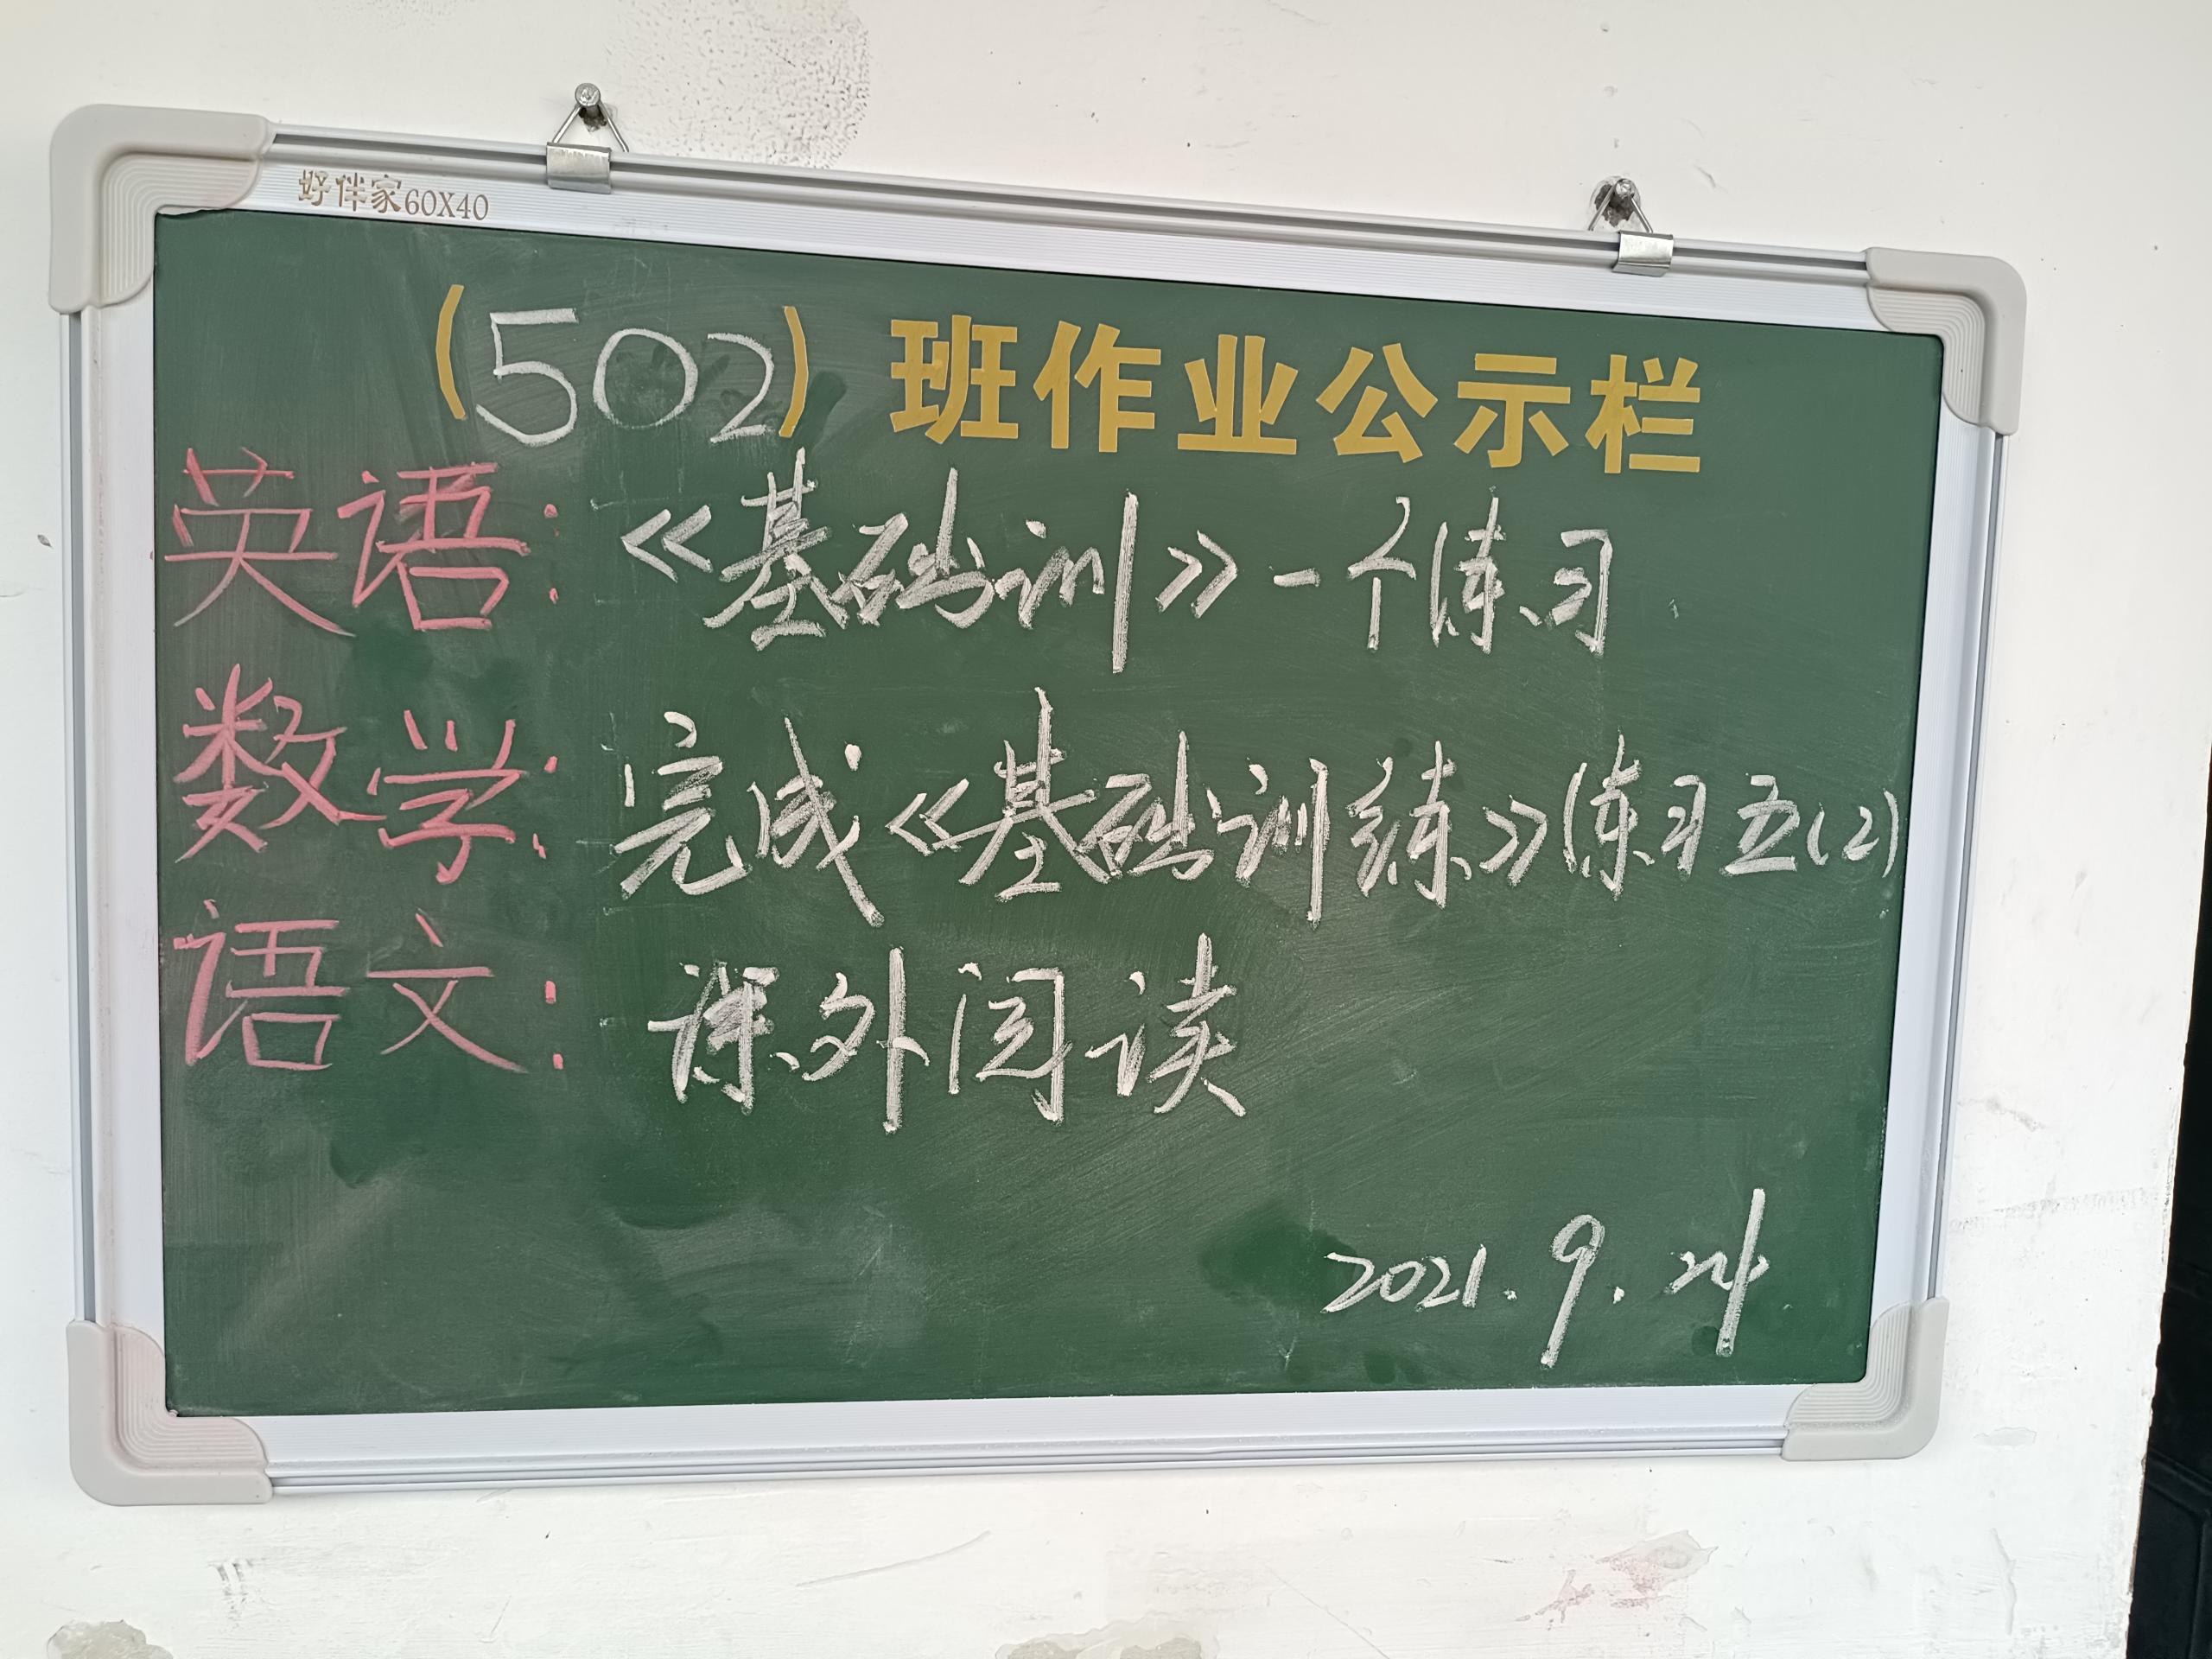 好伴家60X40
(502)班作业公示栏
英语:《基础训》一个练习
数学:完成《基础训练》练习五(2)
语文:课外阅读
2021.9.24